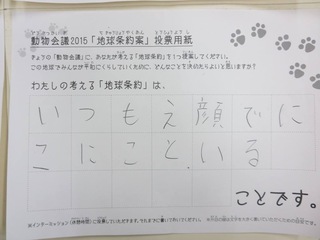 動物会議2015「地球条約案」投票用紙
きょうの「動物会議」に、あなたが考える「地球条約」を1つ提案してください。
この地球でみんなが平和にくらしていくために、どんなことを決めたらよいと思いますか?
わたしの考える「地球条約」は、
いつもえ顔でに
こにこと、いる
ことです。
※インターミッション